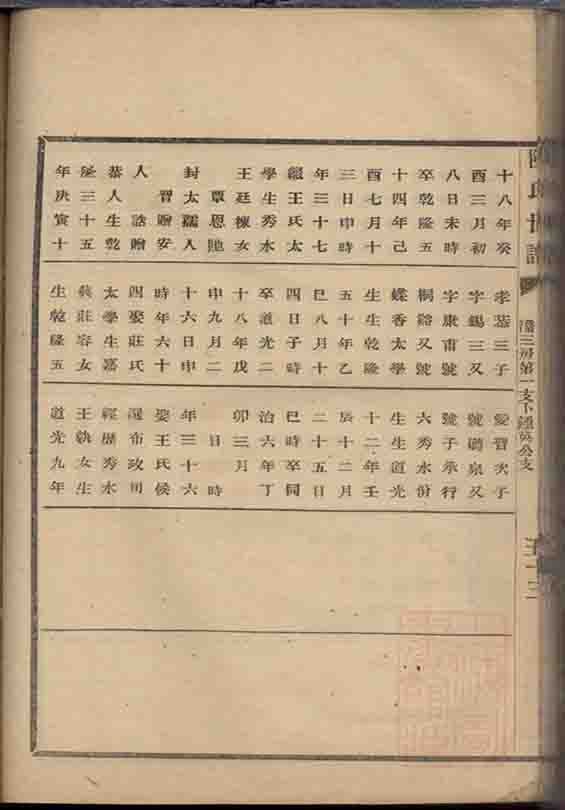 陳氏世譜
三房第一支下鍾英公支
十八年癸
酉三月初
八日未時
卒乾隆五
十四年己
酉七月十
三日申時
年三十七
繼王氏太
學生秀水
王廷棟女
覃恩貤
封太孺人
晉贈安
人 誥贈
恭人生乾
隆三十五
年庚寅十
孝恭三子
字錫三又
字康甫號
桐谿又號
蝶香太學
生生乾隆
五十年乙
巳八月十
四日子時
卒道光二
十八年戊
申九月二
十六日申
時年六十
四娶莊氏
太學生嘉
興莊容女
生乾隆五
愛晉次子
號礪泉又
號子承行
六秀水佾
生生道光
十二年壬
辰十二月
二十五日
巳時卒同
治六年丁
卯三月
日 時
年三十六
娶王氏候
選布政司
經歷秀水
王執女生
道光九年